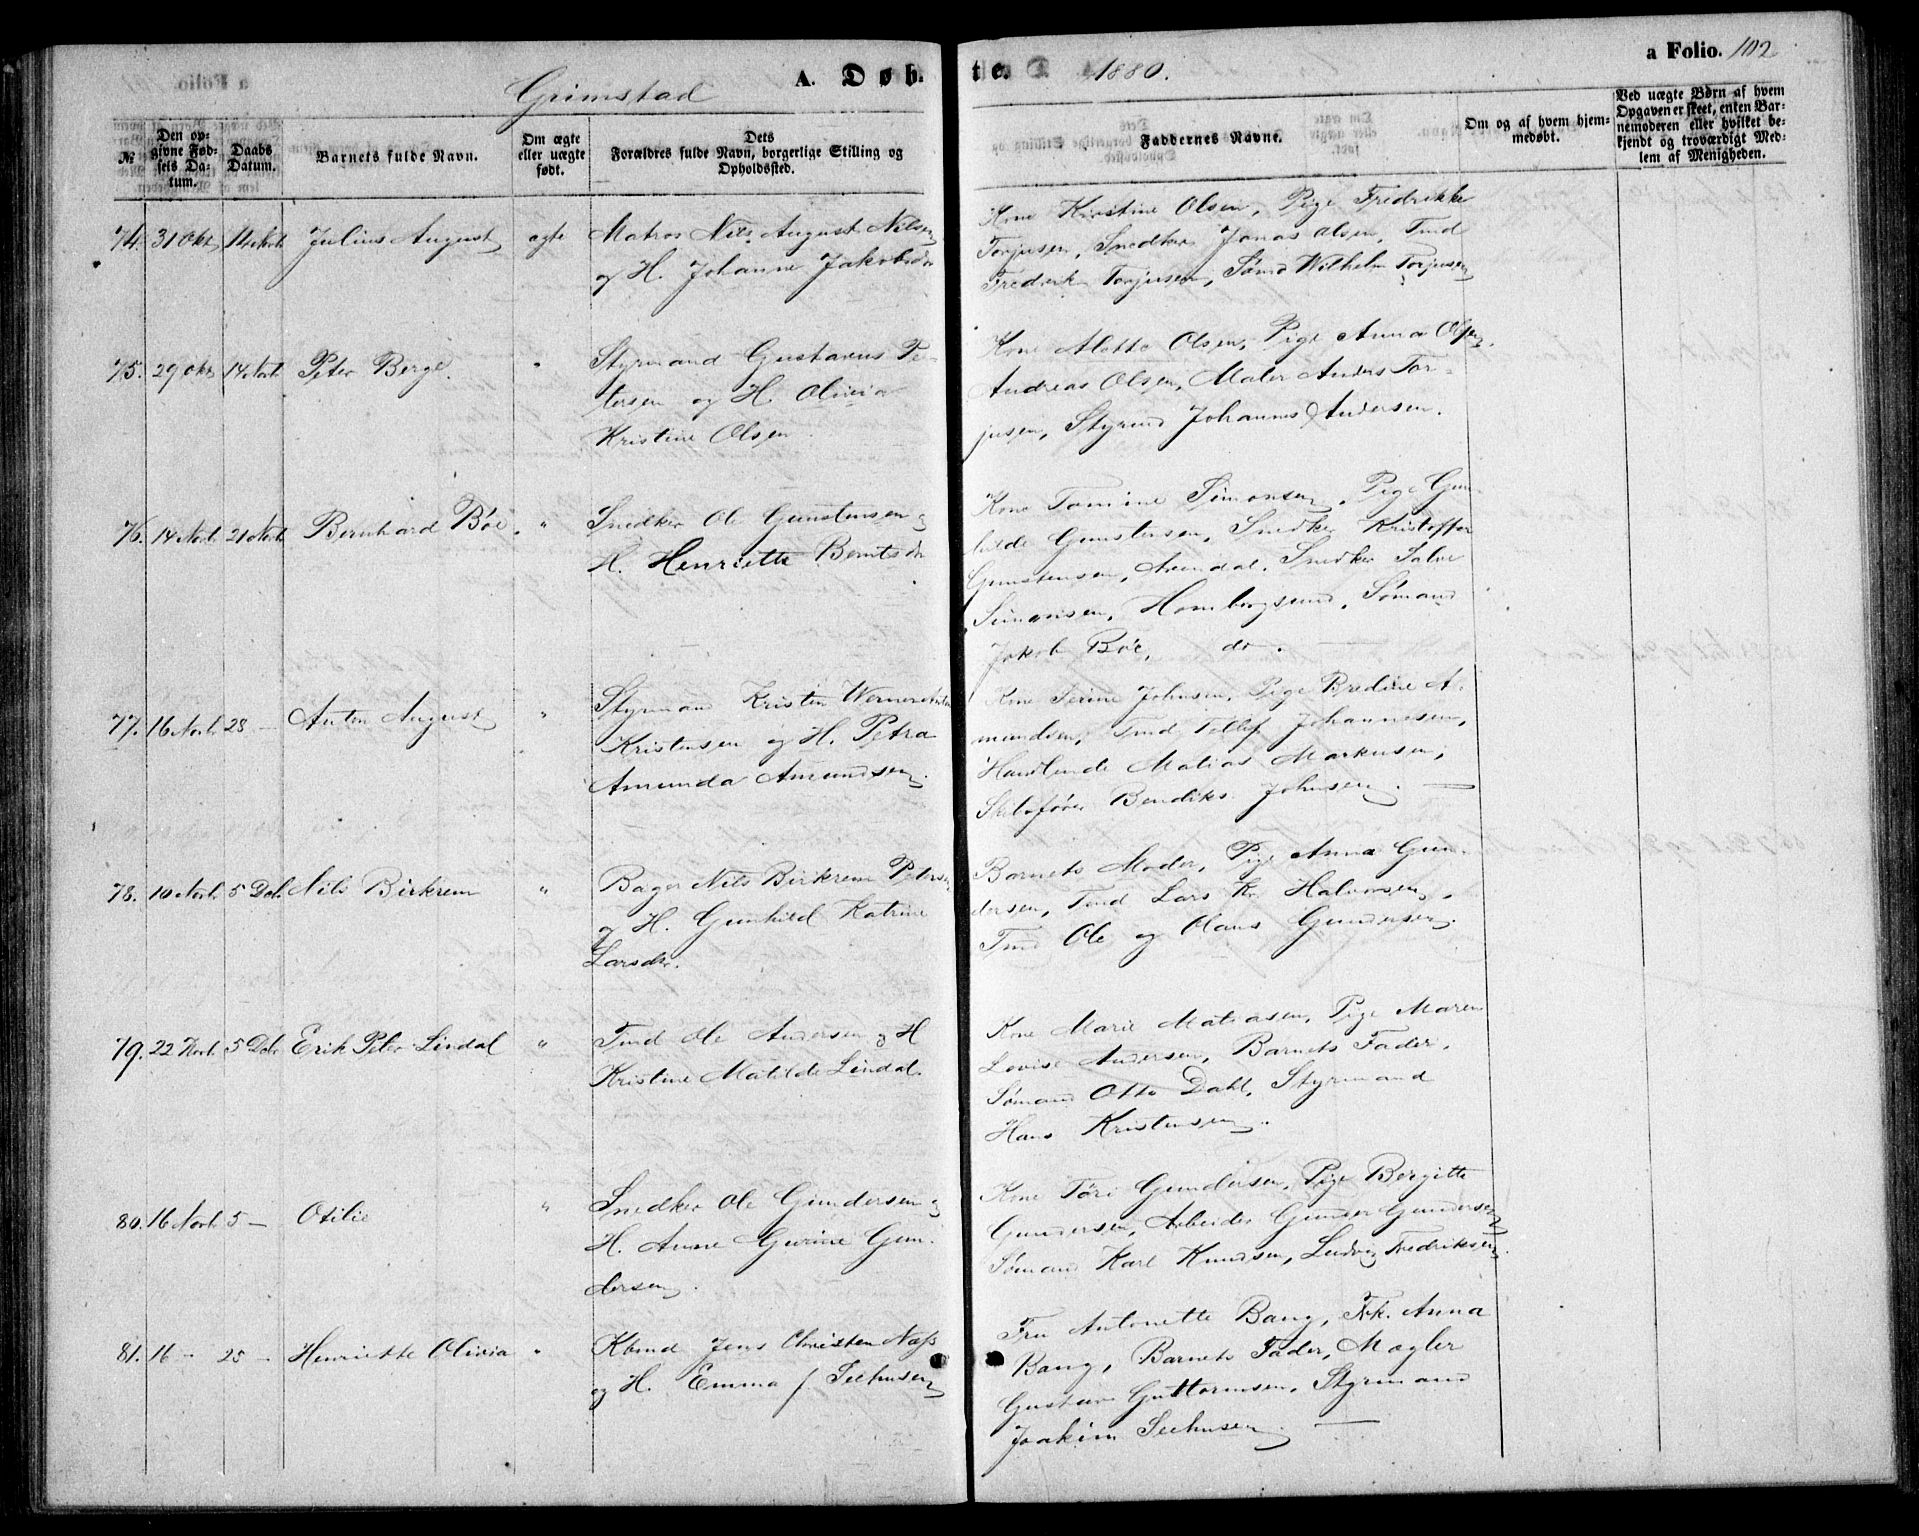 Grimstad
A. Døb-
te.
1880.
a Folio. 102
№
Den op-
givne Fød-
sels Da-
tum.
Daabs
Datum.
Barnets fulde Navn.
Om ægte
eller uægte
født.
Dets
Forældres fulde Navn, borgerlige Stilling og
Opholdssted.
Faddernes Navne.
Om og af hvem hjem-
medøbt.
Ved uægte Børn af hvem
Opgaven er skeet, enten Bar-
nemoderen eller hvilket be-
kjendt og troværdigt Med-
lem af Menigheden.
74. 31 Okt 14 Novb Julius August ægte
Matros Nils August Nilsen
og H. Johanne Jakobsdr
Kone Kirstine Olsen, Pige Fredrikke
Torjusen, Snedker Jonas Olsen, Tmd
Fredrik Torjusen, Sømd Wilhelm Torjusen
75. 29 Okt 14 Novb Peter Berge. "
Styrmand Gustavus Pe-
tersen og H. Olivia
Kristine Olsen.
Kone Alette Olsen, Pige Anna Olsen,
Andreas Olsen, Maler Anders Tor-
jusen, Styrmd Johannes Andersen.
76. 14 Novb 21 Novb Bernhard Bøe. "
Snedker Ole Gunstensen og
H. Henriette Berntsdr
Kone Tomine Simonsen, Pige Gun-
hilde Gunstensen, Snedker Kristoffer
Gunstensen, Arendal, Snedker Salve
Simonsen, Homborgsund, Sømand
Jakob Bøe, do.
77. 16 Novb 28 — Anton August "
Styrmand Kristen Werner
Kristensen og H. Petra
Amunda Amundsen.
Kone Serine Johnsen, Pige Bredine A-
mundsen, Tmd Tellef Johannesen,
Handlende Matias Markusen,
Skibsfører Bendiks Johnsen. —
78. 10 Novb 5 Dcb. Nils Birkrem "
Bager Nils Birkrem Petersen
og H. Gunhild Katrine
Larsdr.
Barnets Moder, Pige Anna Gun-
dersen, Tmd Lars Kr Halvorsen,
Tmd Ole og Olaus Gundersen.
79. 22 Novb 5 Dcb Erik Peter Lindal "
Tmd Ole Andersen og H
Kristine Matilde Lindal.
Kone Marie Matiasen, Pige Maren
Lovise Andersen, Barnets Fader,
Sømand Otto Dahl, Styrmand
Hans Kristensen.
80. 16 Novb 5 — Otilie "
Snedker Ole Gundersen og
H. Anne Gurine Gun-
dersen.
Kone Tøri Gundersen, Pige Bergitte
Gundersen, Arbeider Gunder Gundersen
Sømand Karl Knudsen, Ludvig Fredriksen.
81. 16 — 25 — Henriette Olivia "
Kbmd Jens Christen Næss
og H. Emma f Seehusen
Fru Antonette Bang, Frk. Anna
Bang, Barnets Fader, Mægler
Gustav Guttormsen, Styrmand
Joakim Seehusen —